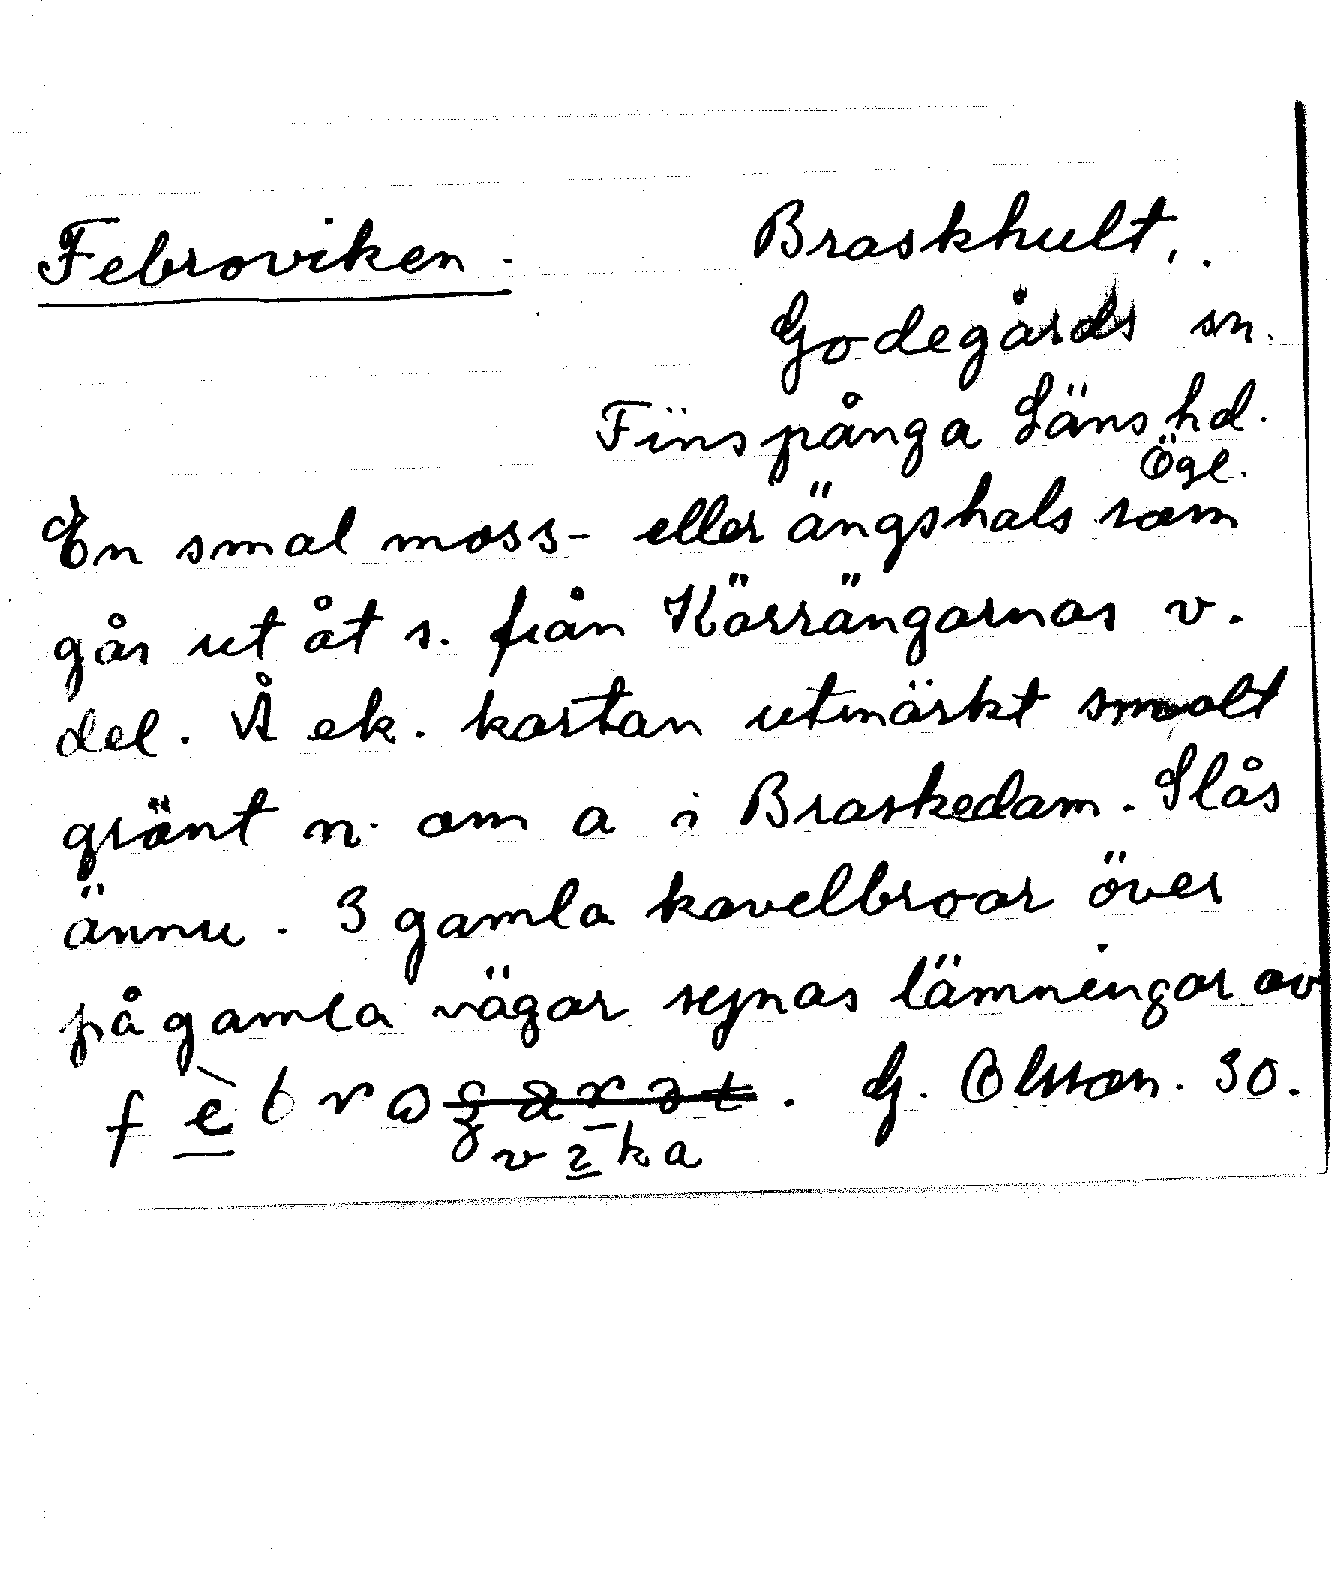 Febroviken.
Braskhult,.
Godegårds sn.
Finspånga Läns hd.
Ögl.
En smal moss- eller ängshals som
går ut åt s. från Körrängarnas v.
del. Å ek. kartan utmärkt smalt
grönt n. om a i Braskedam. Slås
ännu. 3 gamla kavelbroar över
på gamla vägar synas lämningar av
G. Olsson. 30.